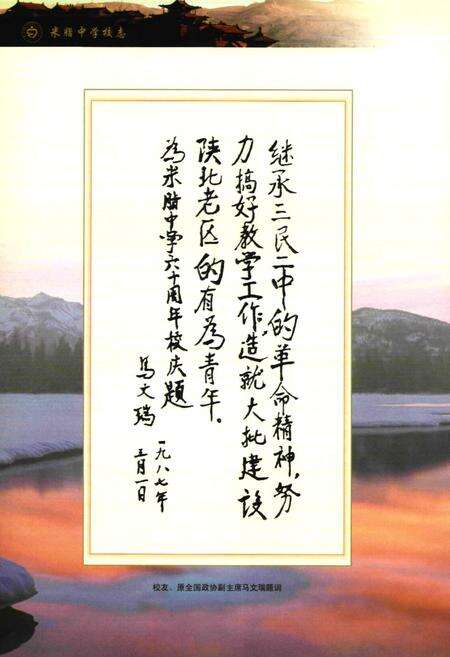 米脂中学校志
继承三民二中的革命精神，努
力搞好教学工作，造就大批建设
陕北老区的有為青年。
為米脂中学六十周年校庆题
马文瑞
一九八七年
三月一日
校友、原全国政协副主席马文瑞题词